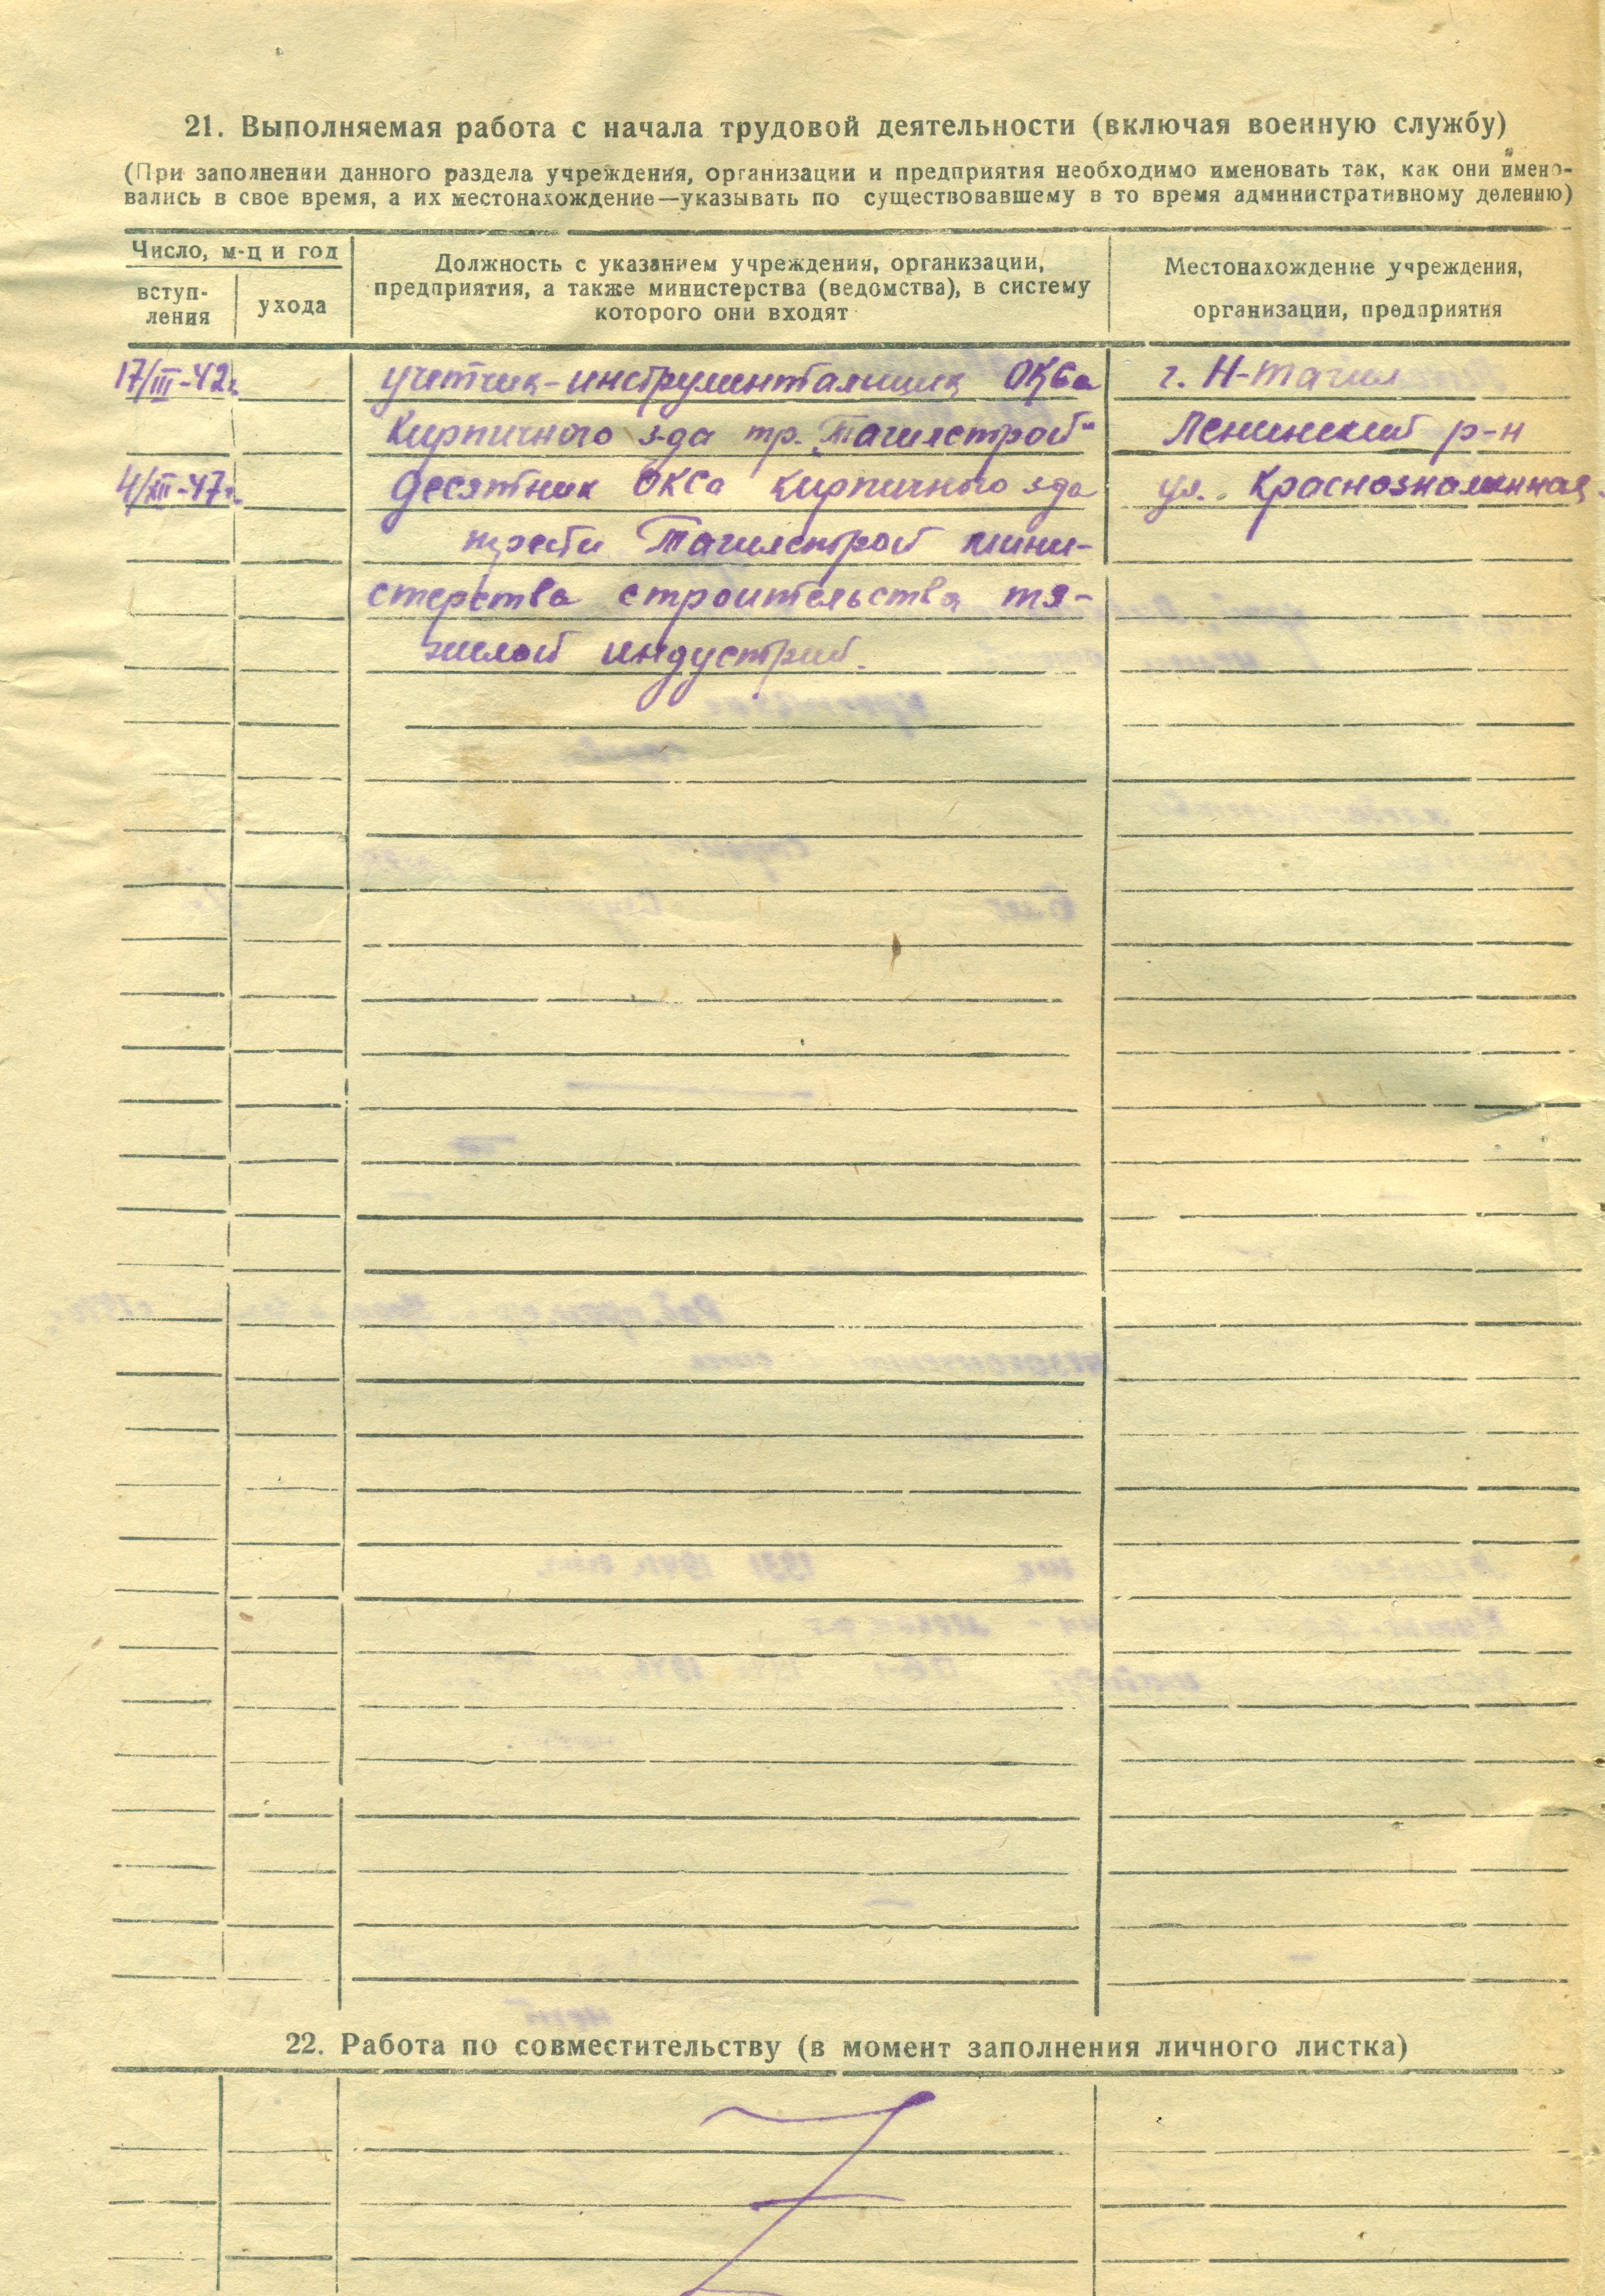 21. Выполняемая работа с начала трудовой деятельности (включая военную службу)
(При заполнении данного раздела учреждения, организации и предприятия необходимо именовать так, как они имено-
вались в свое время, а их местонахождение—указывать по существовавшему в то время административному делению)
Число, м-ц и год
вступ-
ления
ухода
Должность с указанием учреждения, организации,
предприятия, а также министерства (ведомства), в систему
которого они входят
Местонахождение учреждения,
организации, предприятия
17/III-42г. учетчик-инструментальщик ОКСа г. Н-Тагил
Кирпичного з-да тр. „Тагилстрой“ Ленинский р-н
4/XII-47г. десятник ОКСа кирпичного з-да ул. Краснознаменная.
треста Тагилстрой мини-
стерства строительства тя-
желой индустрий.
22. Работа по совместительству (в момент заполнения личного листка)